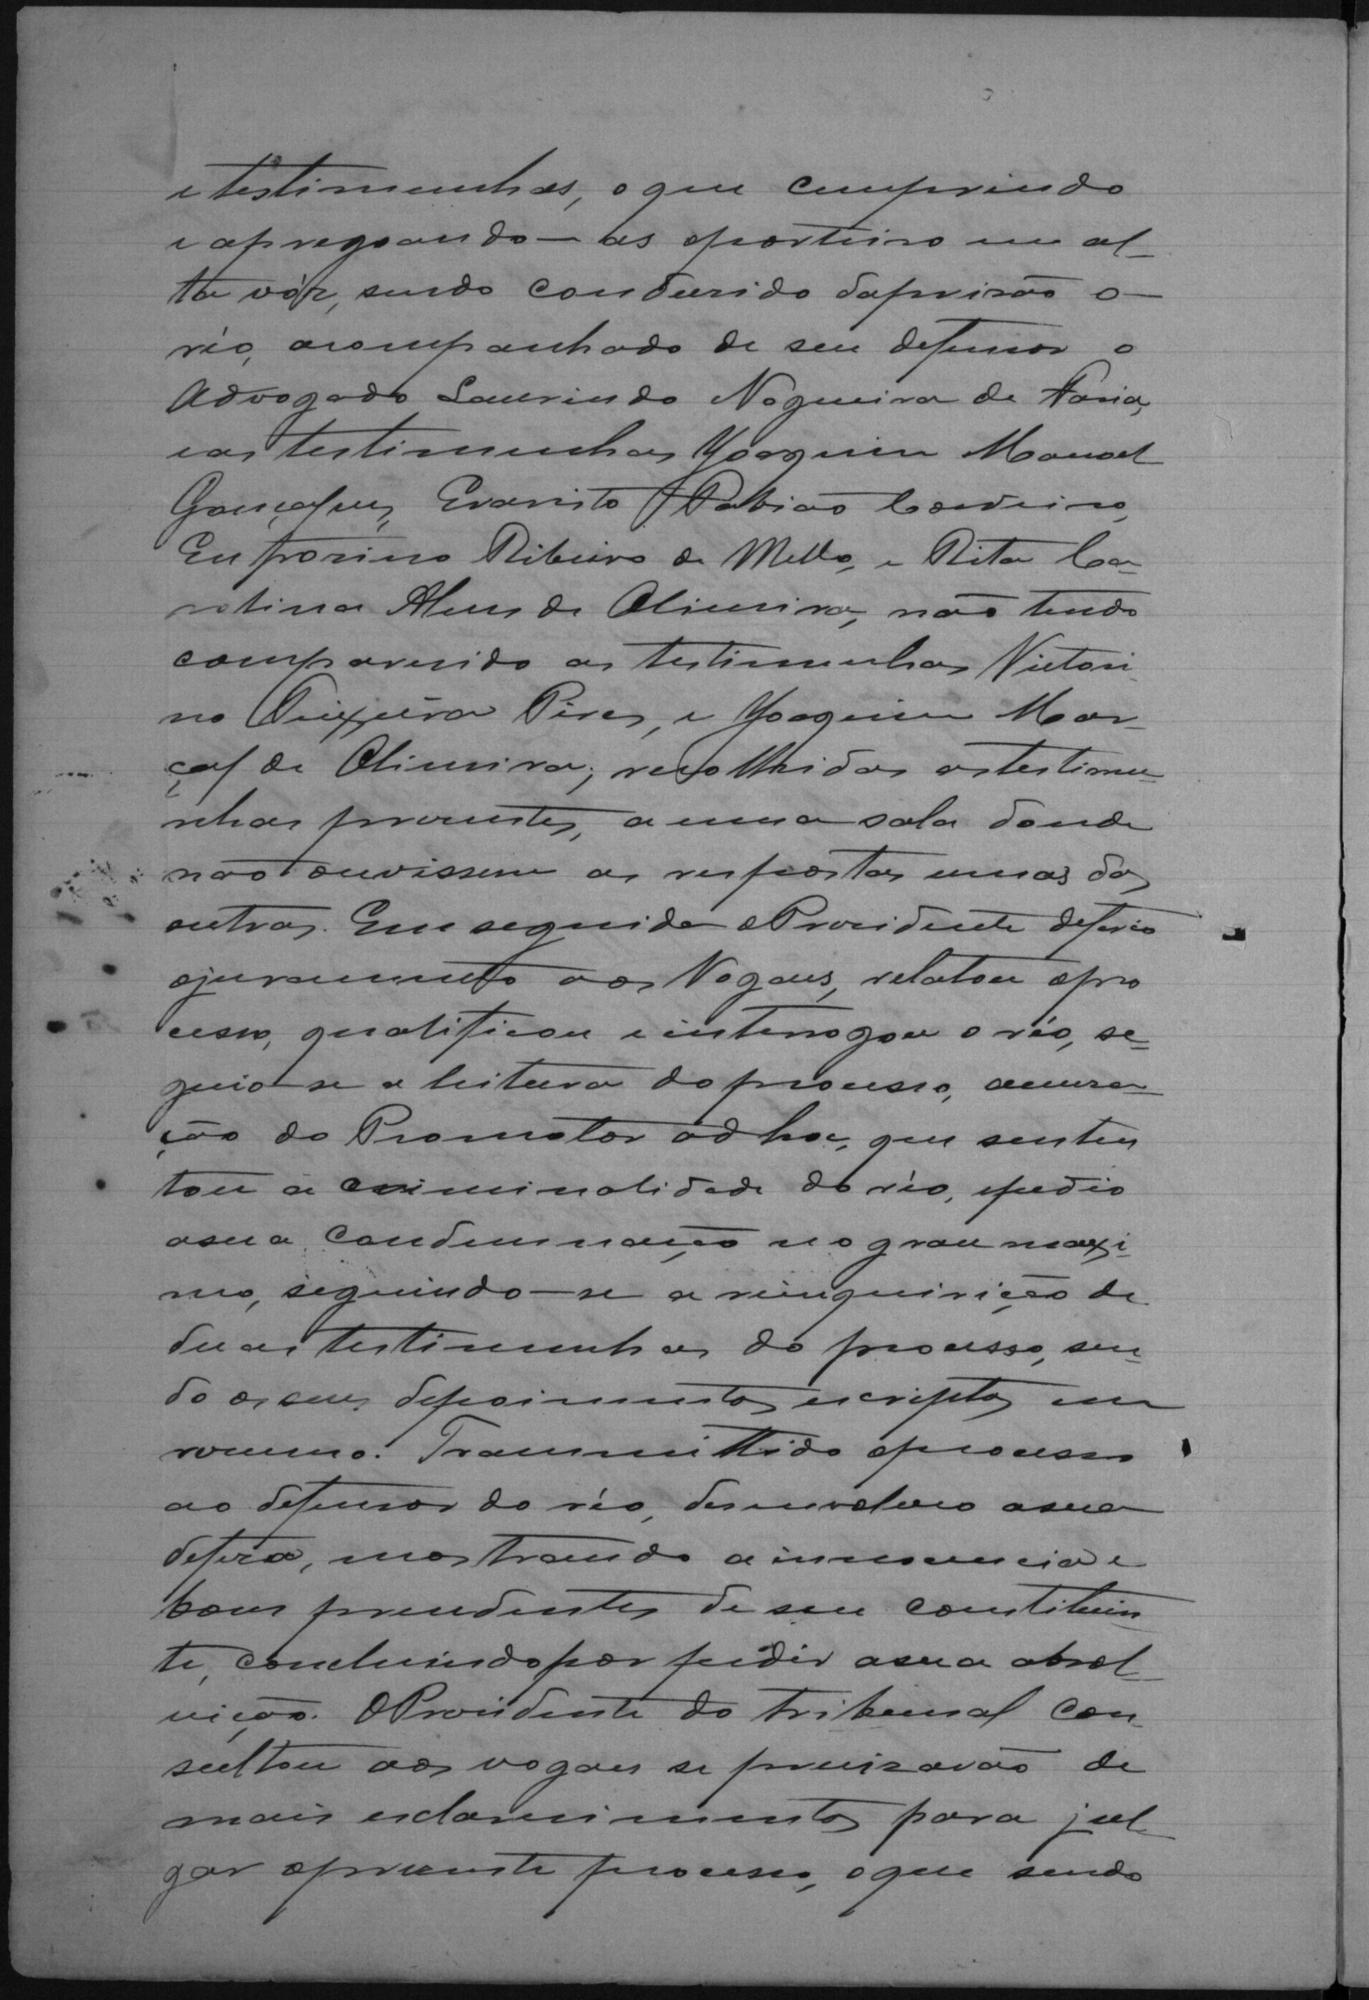 e testimunhas, o que cumprindo
e apregoando-as oporteiro em al-
ta vóz, sendo condusido daprisão o
réo, acompanhado de seu defensor o
Advogado Laurindo Nogueira de Faria,
eas testimunhas Joaquim Manoel
Gonçalves, Evaristo Fabião Cordeiro,
Eufrosino Ribeiro de Mello, e Rita Ca-
rolina Alves de Oliveira, não tendo
comparecido as testimunhas Victori-
no Teixeira Pires, e Joaquim Mar-
çal de Oliveira; recolhidas astestimu-
nhas presentes, a uma sala donde
não ouvissem as respostas umas das
outras. Em seguida oPresidente deferio
ojuramento aos Vogaes, relatou opro
cesso, qualificou e interrogou o réo, se-
guio-se a leitura doprocesso, acusa-
ção do Promotor ad hoc, que susten
tou a criminalidade do réo, epedio
asua condemnação no grau maxi-
mo, seguindo-se a reinquirição de
duas testimunhas do processo, sen-
do os seus depoimentos escriptos em
resumo. Transmittido oprocesso
ao defensor do réo, desenvolveo asua
defesa, mostrando a innocencia e
bons precedentes de seu constituin
te, concluindo por pedir asua absol-
vição. OPresidente do tribunal con-
sultou aos vogaes se precizavão de
mais esclarecimentos para jul-
gar opresente processo, oque sendo